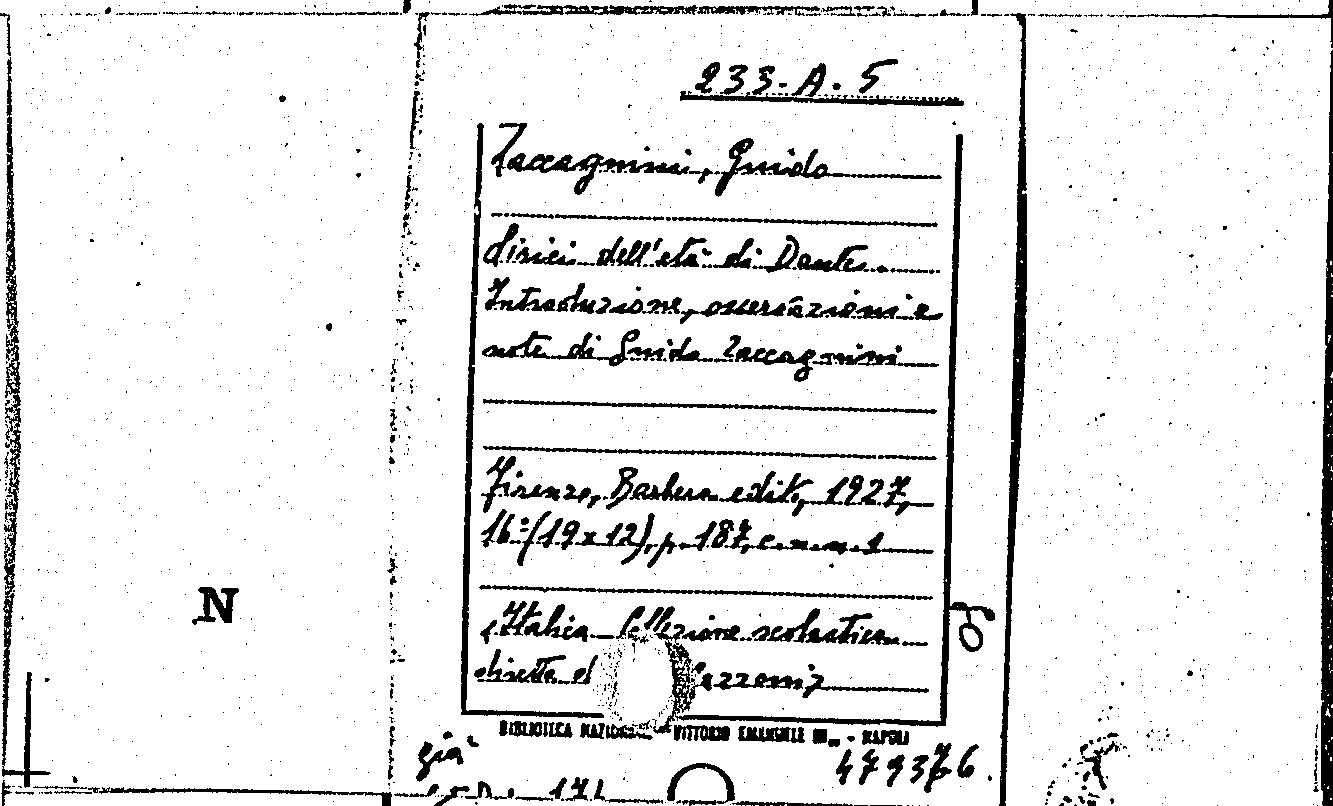 233-A.5
Zaccagnini, Guido
Lirici dell'età di Dante.
Introduzione, osservazioni e
note di Guido Zaccagnini
Firenze, Barbera edit., 1927,
16°(19x12), p. 187, c.n.n.1
(Italica Collezione scolastica
diretta d
N
BIBLIOTECA NAZIONALE "VITTORIO EMANUELE III" - NAPOLI
già
479376